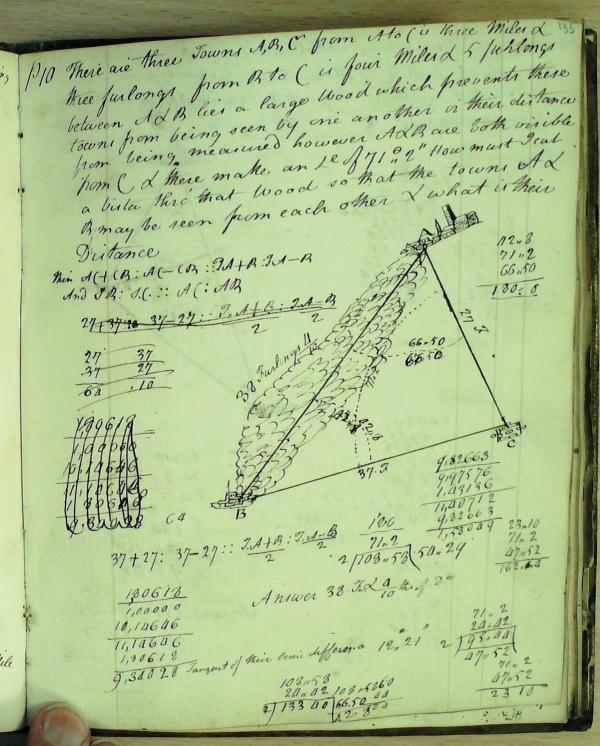 135
P10 There are three Towns A, B, C from A to C is three Miles &
three furlongs from B to C is four Miles & 5 furlongs
between A & B lies a large Wood which prevents these
towns from being seen by one another or their distance
from being measured however A & B are both visible
from C & there make an Le of 71°"2" How must I cut
a vista thro that Wood so that the towns A &
B may be seen from each other & what is their
Distance
AC + CB : AC - CB :: TA+B : TA-B
And SB : S.C. :: AC : AB
27+37 : 37-27 :: TA+B : TA-B
2 2
27 37
37 27
64 .10
42"8
71"2
66"50
180"0
27 F
66"50
66"50
38 Furlongs 4
42"8
37 F
A
B
C
9,82663
9,97576
1,43136
11,40712
9,82663
64
37+27 : 37-27 :: TA+B : TA-B
2 2
180
71"2
2 108"58 54"29
23"10
71"2
47"52
Answer 38 F & 4/10 ths of Do
180618
1,00000
10,14646
11,14646
1,80618
9,34028 Tangent of their semi difference 12"21"
71"2
24"42
2 95"44
47"52
71"2
47"52
23 10
108"58
24"42
2 133 40 66 50